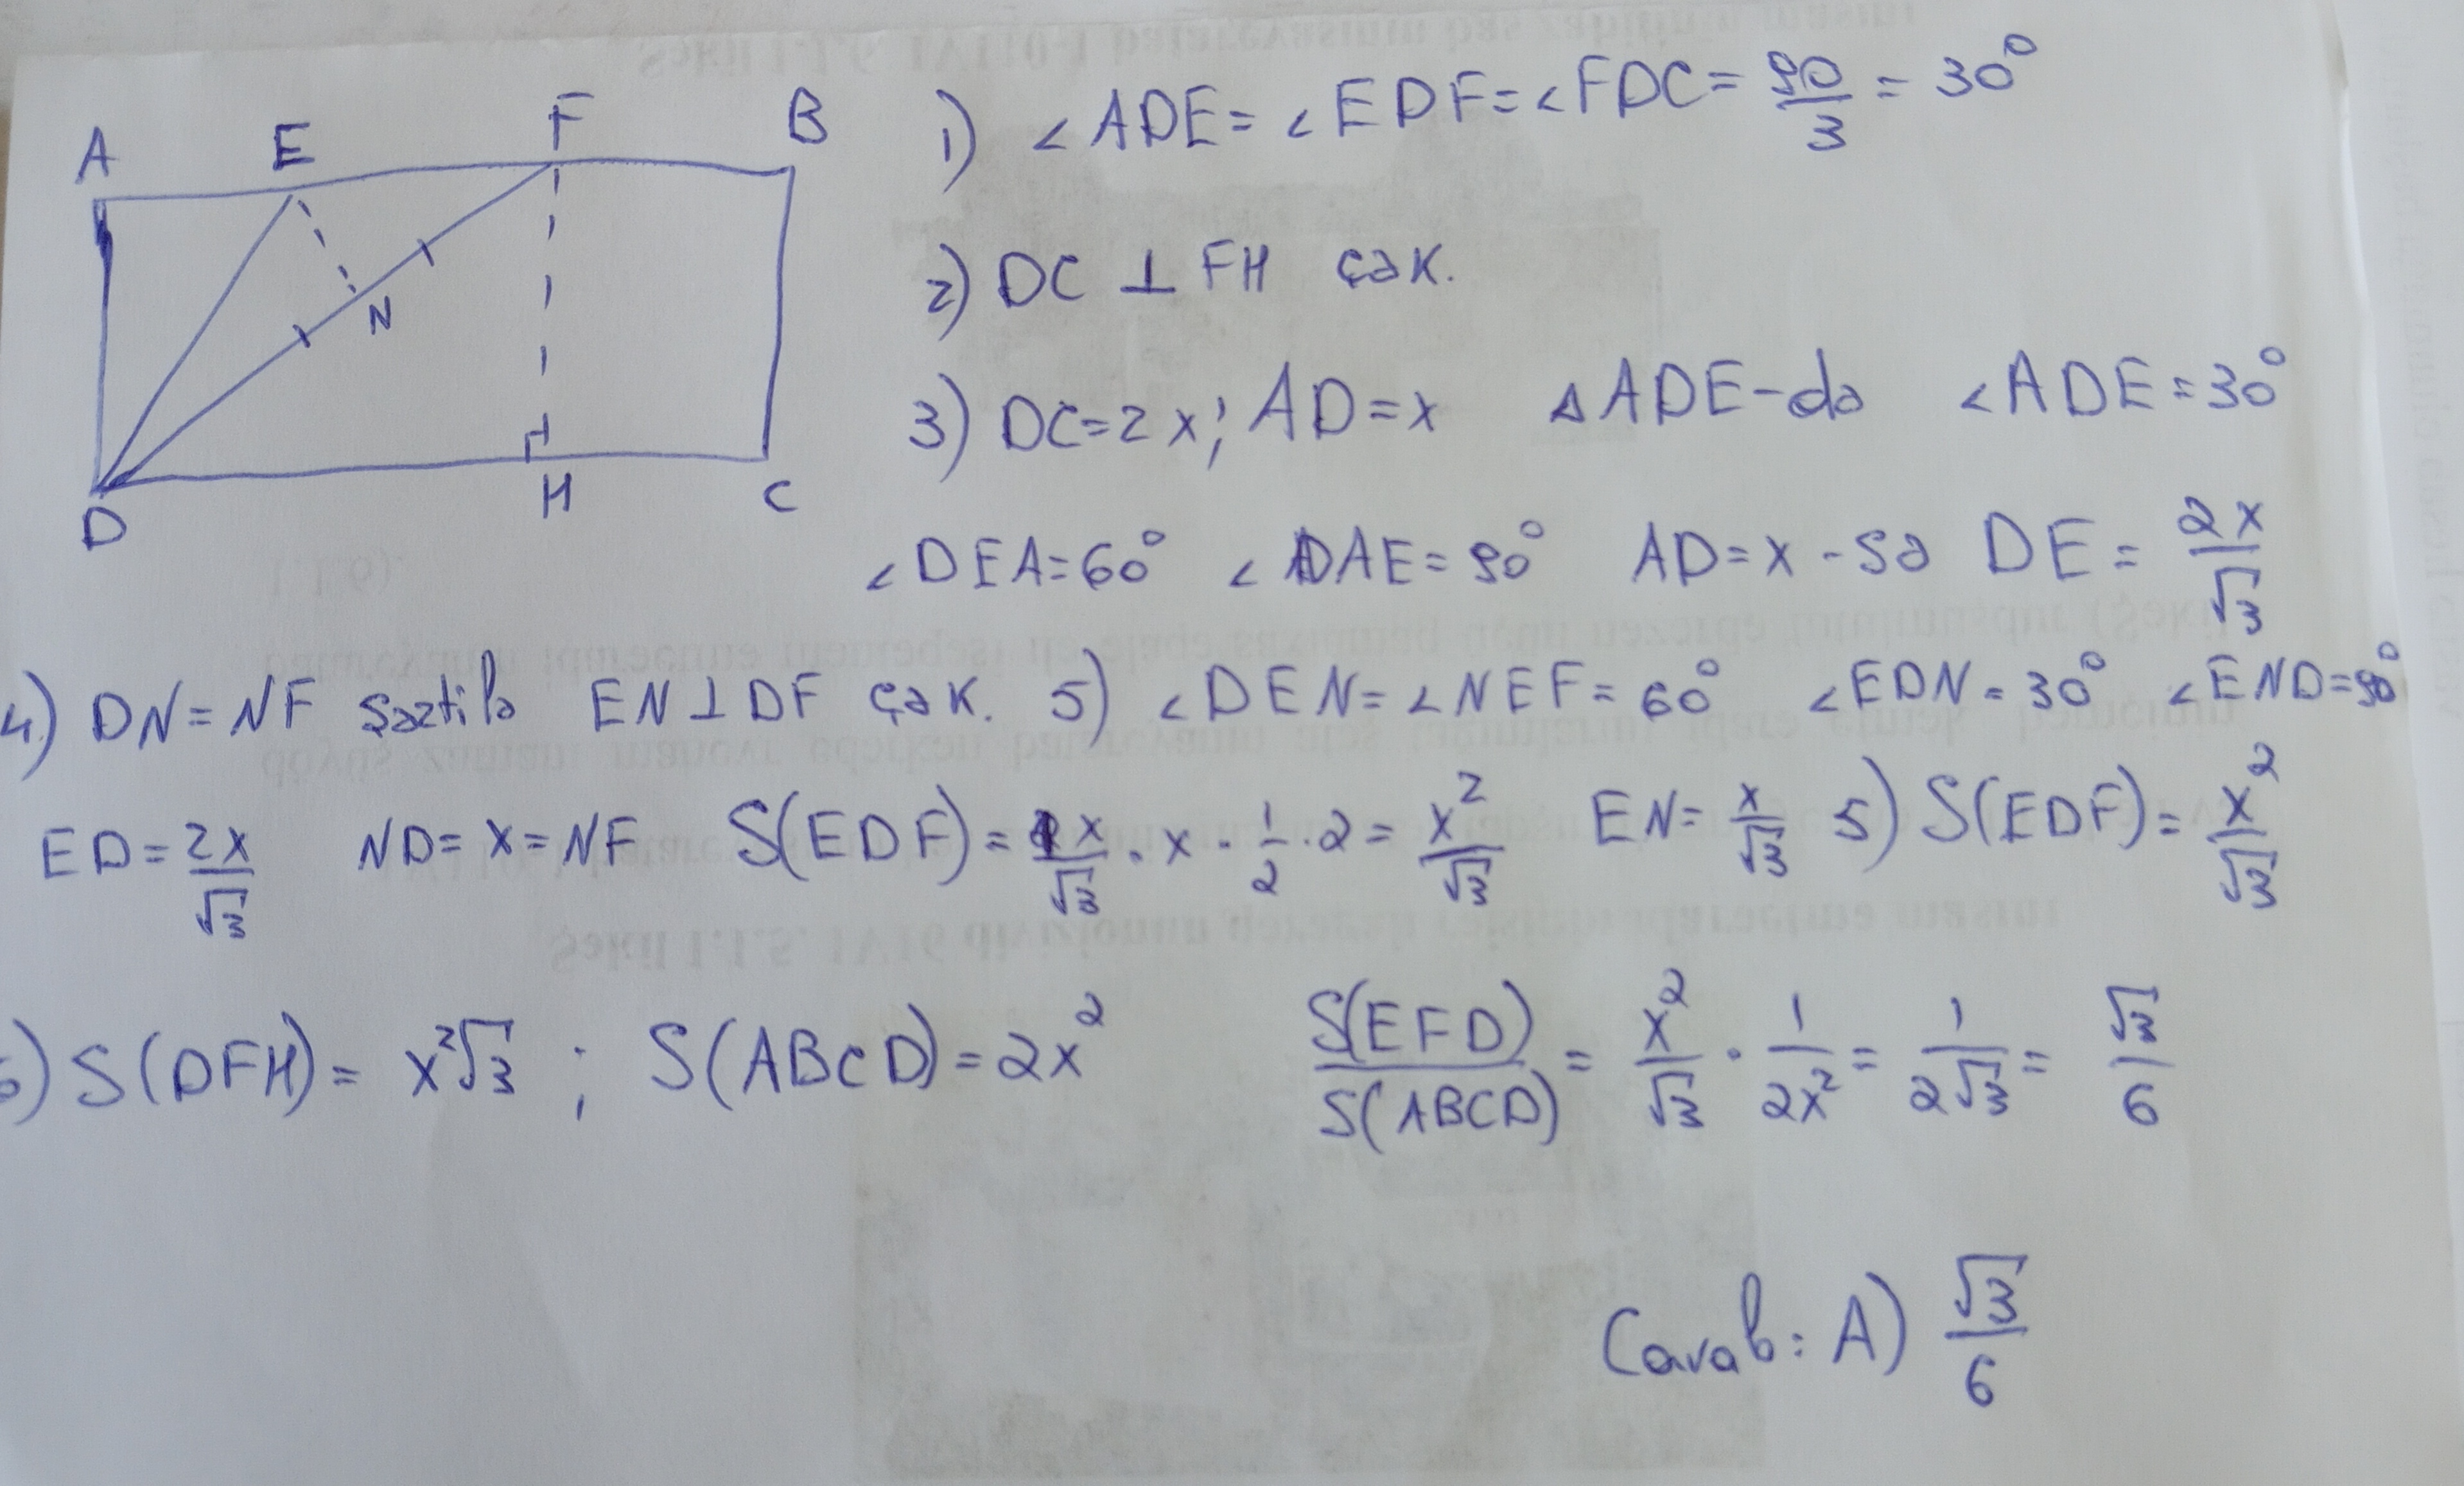 A E F B
N
D H C
1) ∠ADE = ∠EDF = ∠FDC = 90/3 = 30°
2) DC ⊥ FH çək.
3) DC = 2x; AD = x △ADE-də ∠ADE = 30°
∠DEA = 60° ∠DAE = 90° AD = x -sə DE = 2x/√3
4) DN = NF şərtilə EN ⊥ DF çək. 5) ∠DEN = ∠NEF = 60° ∠EDN = 30° ∠END = 90°
ED = 2x/√3 ND = x = NF S(EDF) = 1x/√3 · x · 1/2 · 2 = x²/√3 EN = x/√3 5) S(EDF) = x²/√3
6) S(DFH) = x²√3 ; S(ABCD) = 2x² S(EFD)/S(ABCD) = x²/√3 · 1/2x² = 1/2√3 = √3/6
Cavab: A) √3/6